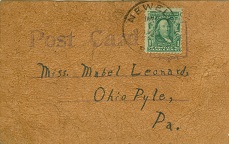 Post Card
Miss. Mabel Leonard,
Ohio Pyle,
Pa.